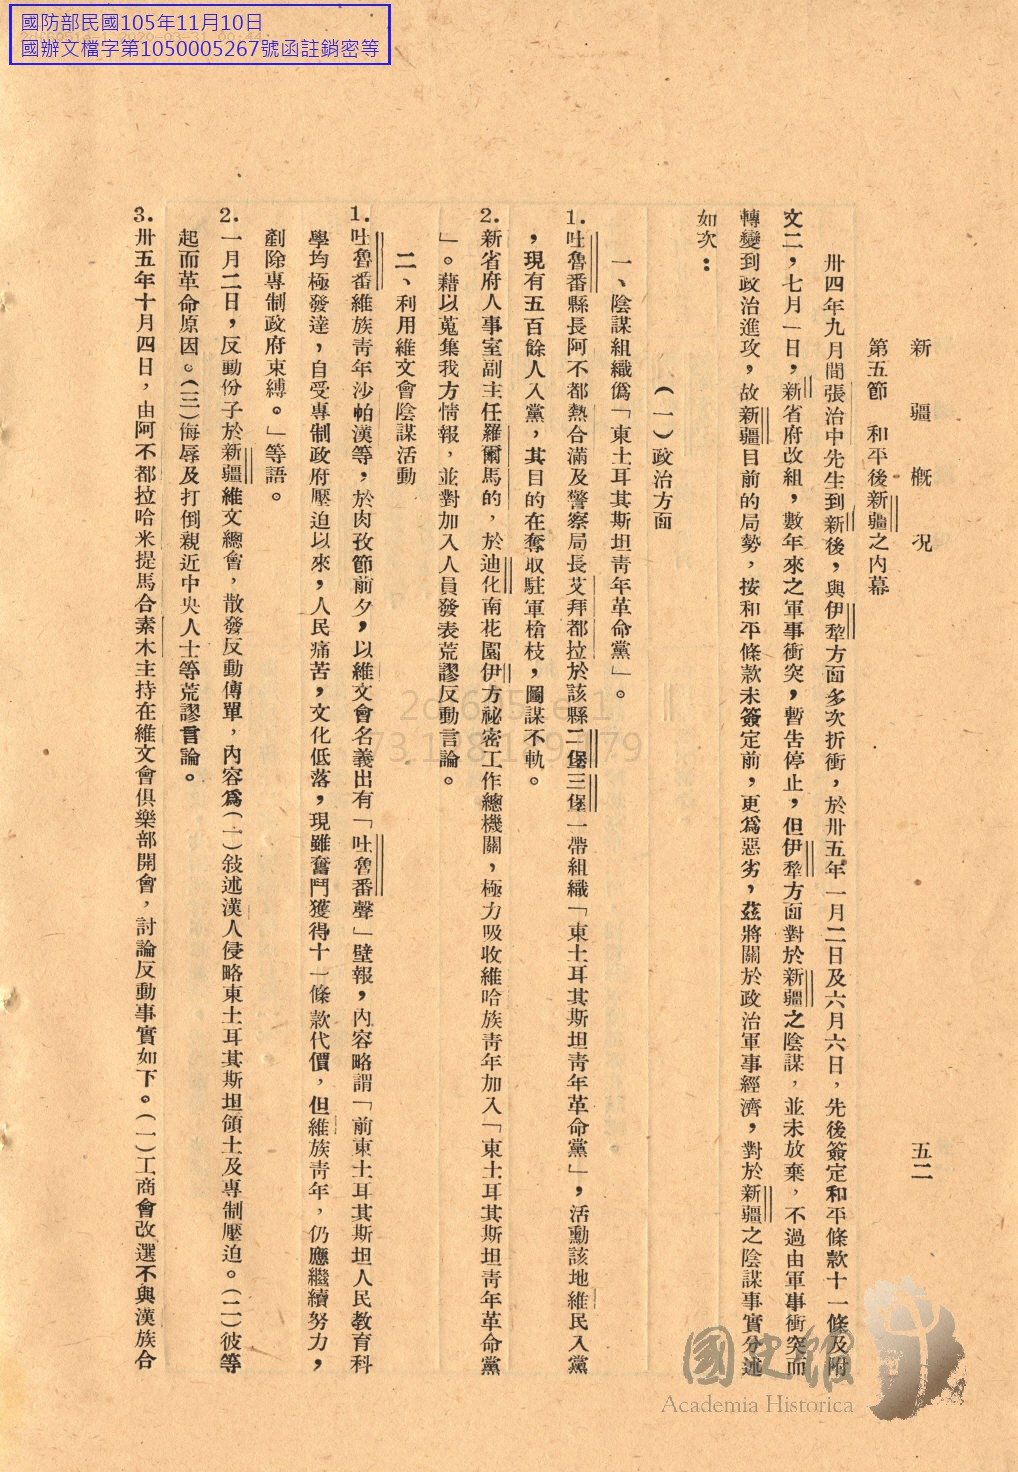 國防部民國105年11月10日
國辦文檔字第1050005267號函註銷密等
新疆概況 五二
第五節 和平後新疆之內幕
卅四年九月間張治中先生到新後，與伊犂方面多次折衝，於卅五年一月二日及六月六日，先後簽定和平條款十一條及附
文二，七月一日，新省府改組，數年來之軍事衝突，暫告停止，但伊犂方面對於新疆之陰謀，並未放棄，不過由軍事衝突而
轉變到政治進攻，故新疆目前的局勢，按和平條款未簽定前，更爲惡劣，茲將關於政治軍事經濟，對於新疆之陰謀事實分述
如次：
（一）政治方面
一、陰謀組織僞「東土耳其斯坦靑年革命黨」。
1.吐魯番縣長阿不都熱合滿及警察局長艾拜都拉於該縣二堡三堡一帶組織「東土耳其斯坦靑年革命黨」，活動該地維民入黨
，現有五百餘人入黨，其目的在奪取駐軍槍枝，圖謀不軌。
2.新省府人事室副主任羅爾馬的，於迪化南花園伊方祕密工作總機關，極力吸收維哈族靑年加入「東土耳其斯坦靑年革命黨
」。藉以蒐集我方情報，並對加入人員發表荒謬反動言論。
二、利用維文會陰謀活動
1.吐魯番維族靑年沙帕漢等，於肉孜節前夕，以維文會名義出有「吐魯番聲」壁報，內容略謂「前東土耳其斯坦人民教育科
學均極發達，自受專制政府壓迫以來，人民痛苦，文化低落，現雖奮鬥獲得十一條款代價，但維族靑年，仍應繼續努力，
剷除專制政府束縛。」等語。
2.一月二日，反動份子於新疆維文總會，散發反動傳單，內容爲（一）敍述漢人侵略東土耳其斯坦領土及專制壓迫。（二）彼等
起而革命原因。（三）侮辱及打倒親近中央人士等荒謬言論。
3.卅五年十月四日，由阿不都拉哈米提馬合素木主持在維文會俱樂部開會，討論反動事實如下。（一）工商會改選不與漢族合
國史館
Academia Historica